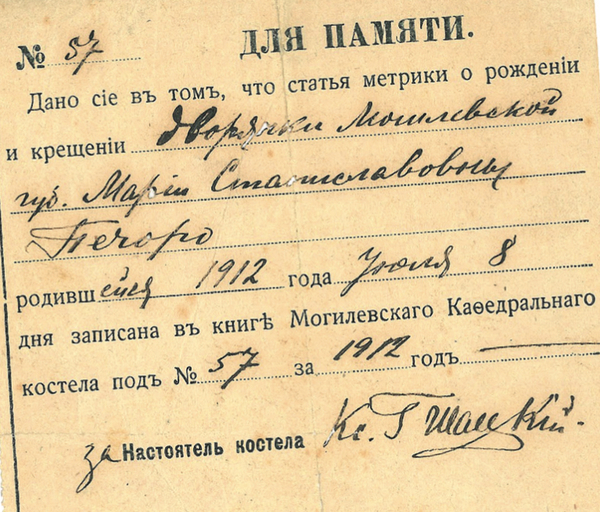 № 57
ДЛЯ ПАМЯТИ.
Дано сіе въ томъ, что статья метрики о рожденіи
и крещеніи дворянки Могилевской
губ. Маріи Станиславовны
Печоро
родившейся 1912 года Іюля 8
дня записана въ книгѣ Могилевскаго Каѳедральнаго
костела подъ № 57 за 1912 годъ
за Настоятель костела Кс. Г